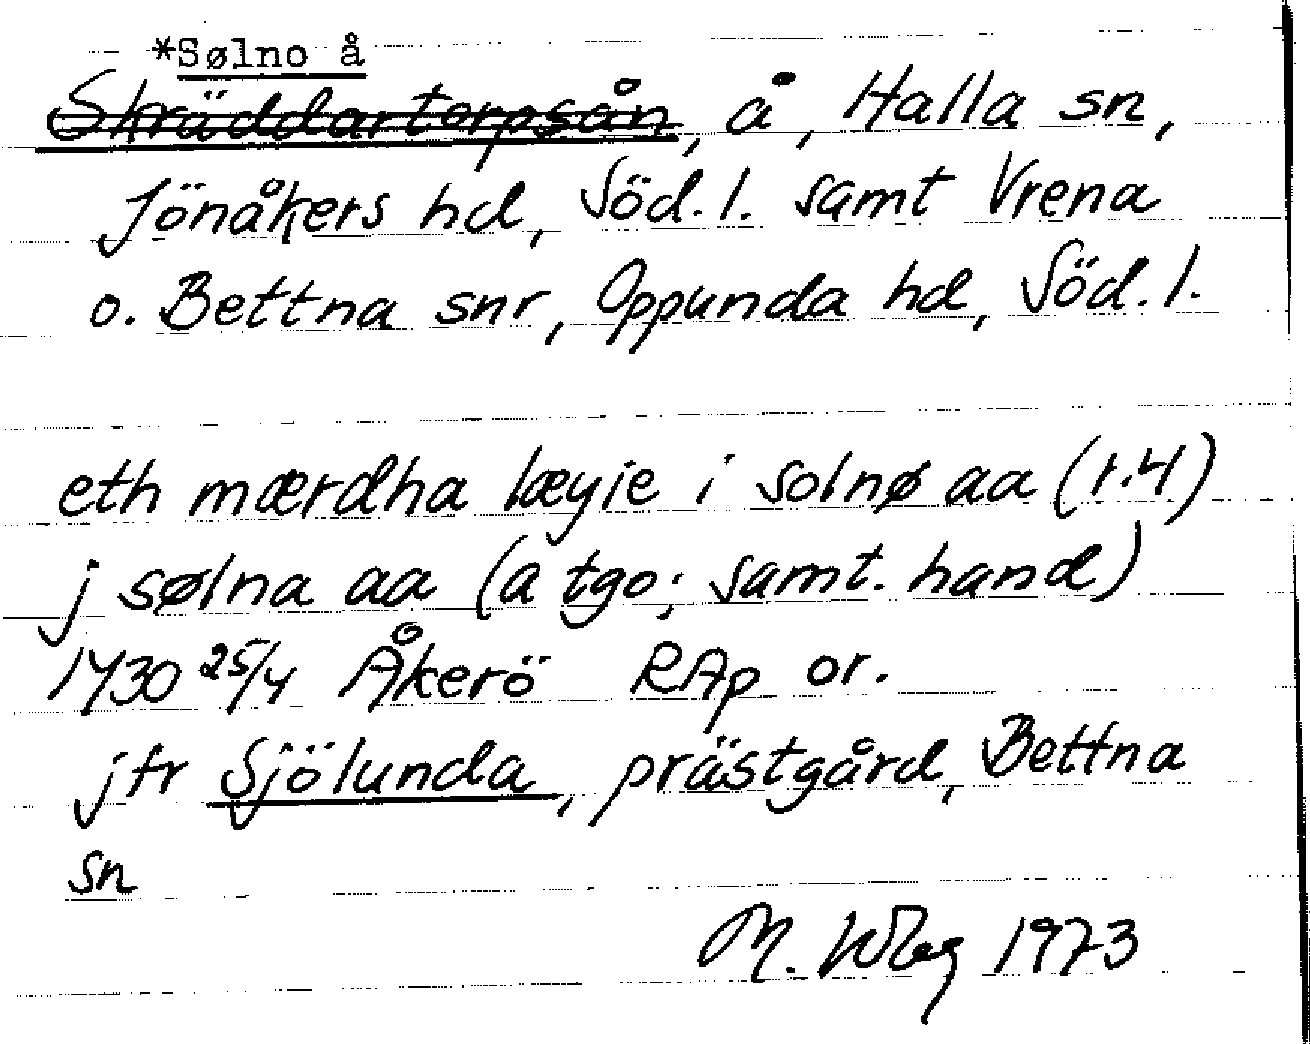 *Sølno å
Skräddartorpsån, å, Halla sn,
Jönåkers hd, Söd.l. samt Vrena
o. Bettna snr, Oppunda hd, Söd.l.
eth mærdha læyie i solnø aa (r.4)
j sølna aa (a tgo; samt. hand)
1430 25/4 Åkerö RAp or.
jfr Sjölunda, prästgård, Bettna
sn
M. 1973